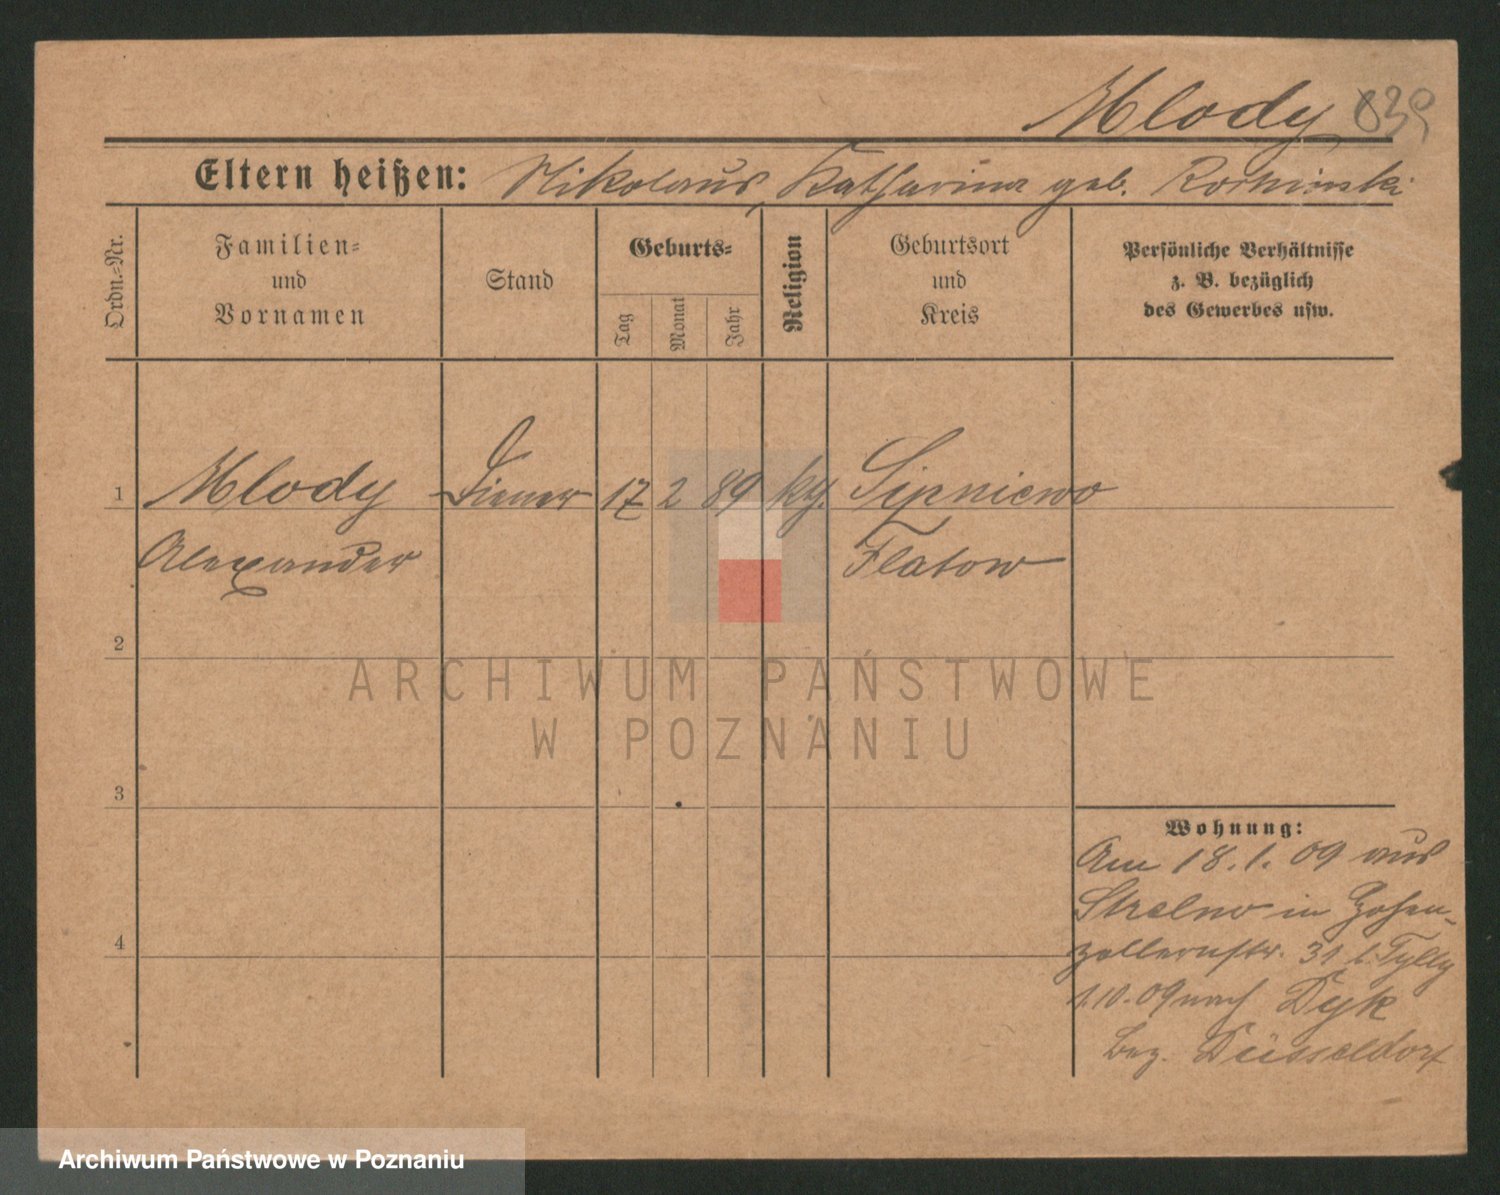 Mlody
Eltern heißen: Nikolaus, Katharina geb.
Ordn.-Nr.
Familien-
und
Vornamen
Stand
Geburts-
Tag
Monat
Jahr
Religion
Geburtsort
und
Kreis
Persönliche Verhältnisse
z. B. bezüglich
des Gewerbes usw.
1 Mlody Diener 17 2 89 kth. Sypniewo
Alexander Flatow
2
ARCHIWUM PAŃSTWOWE
W POZNANIU
3
Wohnung:
Am 18.1.09 aus
Strelno in Hohen-
4
zollernstr. 31 b.
1.10.09 nach Dyk
Bez. Düsseldorf
Archiwum Państwowe w Poznaniu